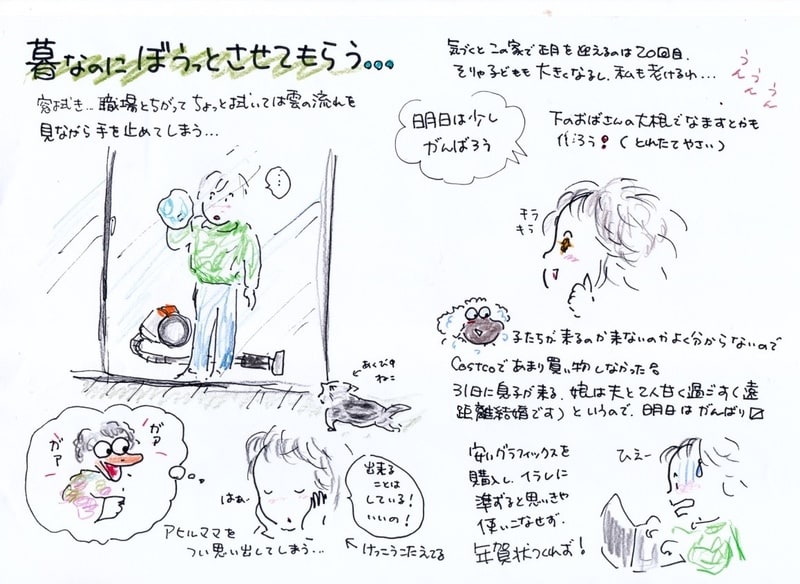 暮なのにぼうっとさせてもらう...
窓拭き... 職場とちがって ちょっと拭いては雲の流れを
見ながら 手を止めてしまう...
...
あくび中
ねこ
ガァ
ガァ
アヒルママを
つい思い出してしまう...
はぁ
出来る
ことは
している!
いいの!
けっこうこたえてる
気づくと この家で正月を迎えるのは20回目.
そりゃ子どもも大きくなるし、私も老けるわ...
うん
うん
うん
明日は少し
がんばろう
下のおばさんの大根でなますとかも
作ろう!(とれたてやさい)
キラ
キラ
子たちが来るのか来ないのかよく分からないので
Costcoであまり買い物しなかった
31日に息子が来る、娘は夫と2人甘く過ごす(遠
距離結婚です)というので、明日はがんばり〼
安いグラフィックスを
購入し、イラレに
準ずると思いきや
使いこなせず.
年賀状つくれず!
ひえー